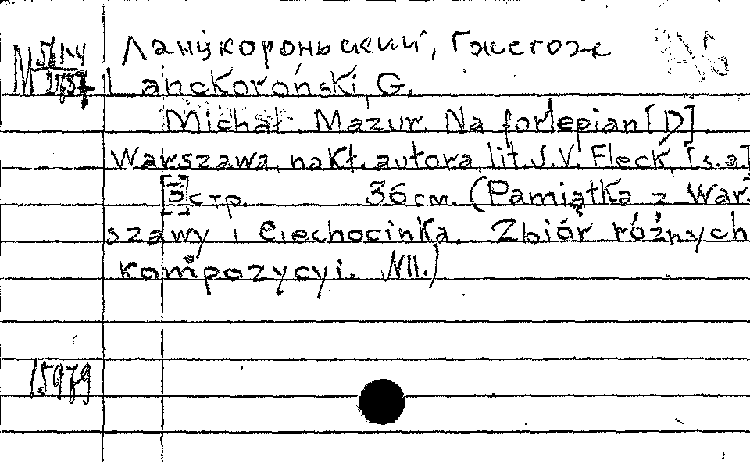 Ланцкороньский, Гжегож
Lanckoroński, G.
Michał Mazur. Na fortepian [D]
Warszawa, nakł. autora, lit. J. V. Fleck, [s.a]
[3] стр. 36 см. (Pamiątka z War
szawy i Ciechocinka. Zbiór różnych
kompozycyi. NII.)
15979